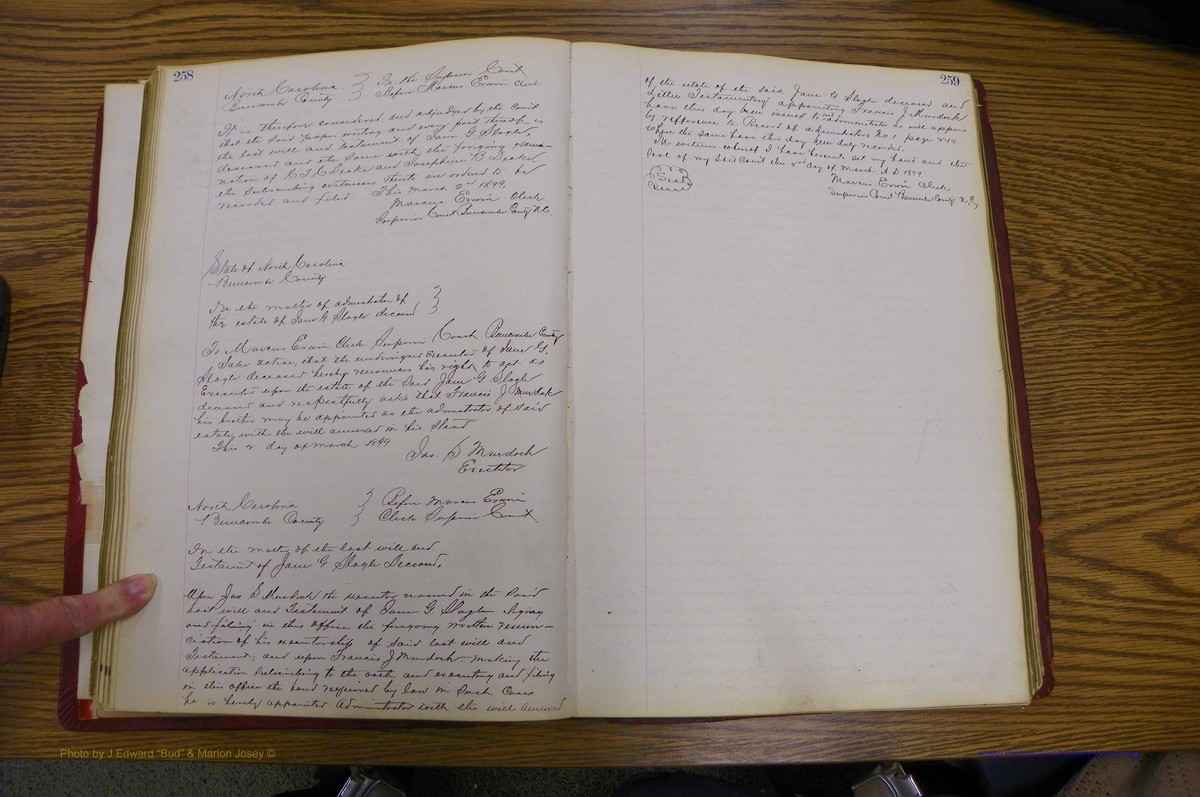 258
North Carolina } In the Superior Court
Buncombe County } Before Marcus Erwin Clerk
It is therefore considered and adjudged by the Court
that the said paper writing and every part thereof is
the last will and testament of Jane G Slagle,
deceased and the same with the forgoing exami-
nation of C. T. C Deake and Josephine B Deake
the subscribing witnesses thereto are ordered to be
recorded and filed This March 2nd 1899.
Marcus Erwin Clerk
Superior Court Buncombe County N.C.
State of North Carolina
Buncombe County
In the matter of administrator of }
the estate of Jane G Slagle deceased }
To Marcus Erwin Clerk Superior Court Buncombe County
Take notice, that the undersigned Executor of Jane G.
Slagle deceased hereby renounces his right to act as
Executor upon the estate of the said Jane G Slagle
deceased and respectfully asks that Francis J Murdock
his brother may be appointed as the admistrator of said
estate, with the will annexed in his stead
This 2 day of March 1899
Jas. S Murdoch
Executor
North Carolina } Before Marcus Erwin
Buncombe County } Clerk Superior Court
In the matter of the last will and
Testament of Jane G Slagle Deceased.
Upon Jas S Murdoch the executor named in the said
Last will and Testament of Jane G. Slagle signing
and filing in this office the forgoing written renun-
ciation of his executorship of said last will and
Testament; and upon Francis J Murdoch making the
application subscribing to the oath and executing and filing
in this office the bond required by law in such cases
he is hereby appointed Administrator with the will annexed
259
of the estate of the said Jane G Slagle deceased and
Letters Testamentary appointing Francis J Murdock
have this day been issued to administrator as will appear
by refference to Record of Administrators No 1 page
where the same have this day been duly recorded.
In witness whereof I have hereunto set my hand and the
Seal of my said Court this 2nd day of March A D 1899.
Seal
Marcus Erwin Clerk
Superior Court Buncombe County N.C.
Photo by J Edward "Bud" & Marion Josey ©